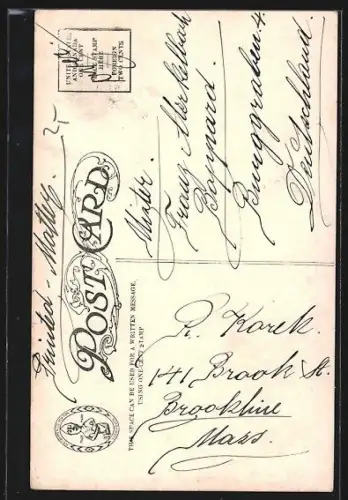 UNITED STATES
AND CANADA
ONE CENT
STAMP
HERE
FOREIGN
TWO CENTS
Printed - Matter
POST CARD
THIS SPACE CAN BE USED FOR A WRITTEN MESSAGE,
USING ONE-CENT STAMP
Mister.
Franz Merkelbach
Boppard.
Burggraben 4.
Deutschland.
R. Korek.
141 Brook St.
Brookline
Mass.